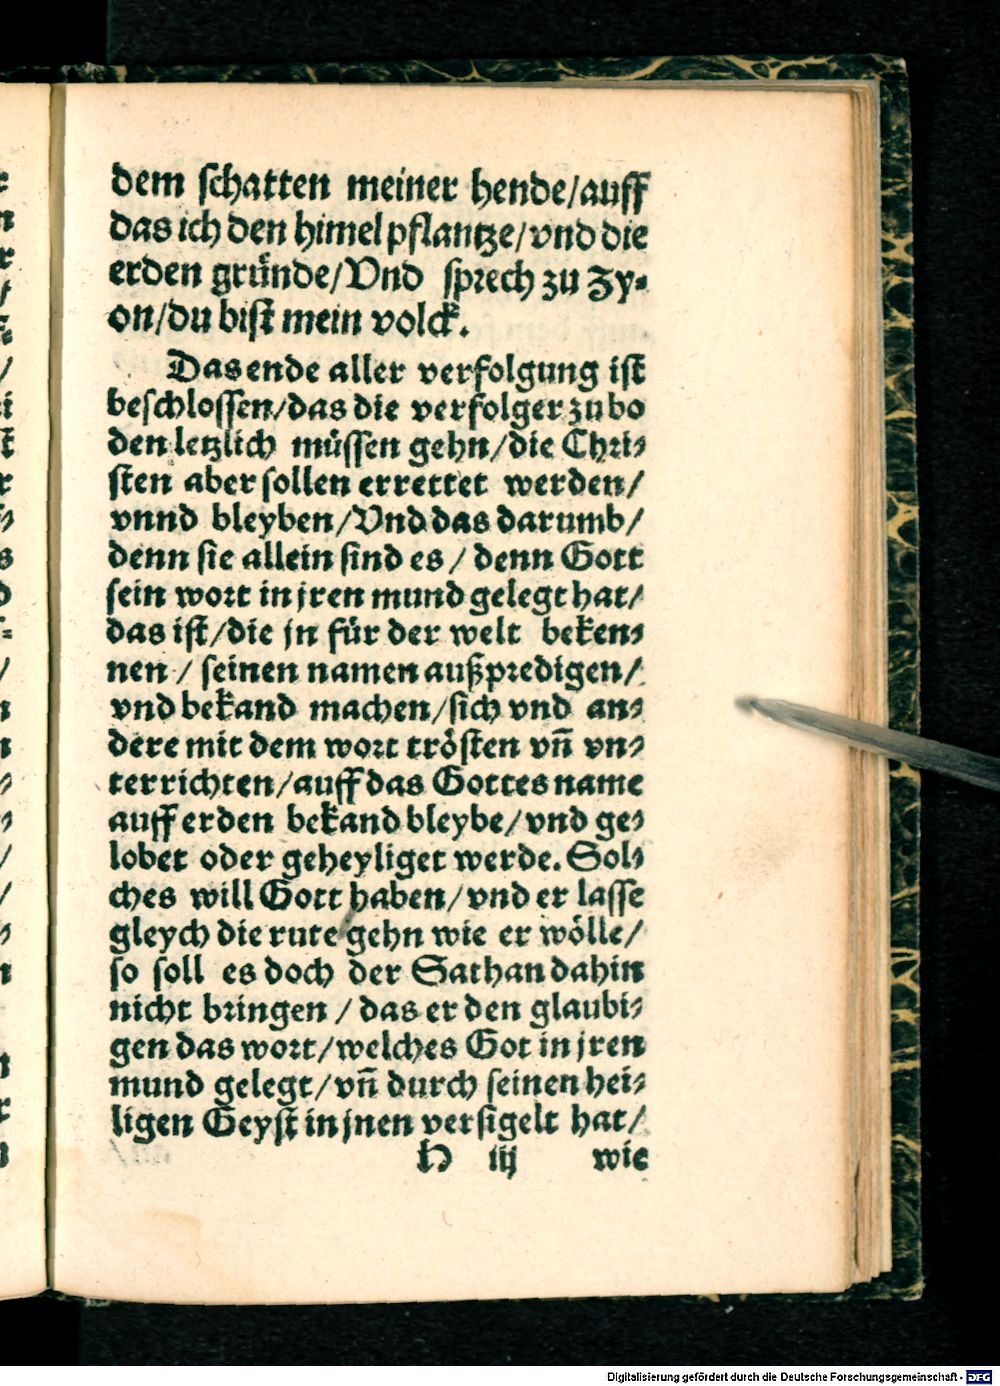 dem schatten meiner hende/auff
das ich den himel pflantze/vnd die
erden gründe/Vnd sprech zu Zy-
on/du bist mein volck.
Das ende aller verfolgung ist
beschlossen/das die verfolger zu bo
den letzlich müssen gehn/die Chri-
sten aber sollen errettet werden/
vnnd bleyben/Vnd das darumb/
denn sie allein sind es/denn Gott
sein wort in jren mund gelegt hat/
das ist/die jn für der welt beken-
nen/seinen namen außpredigen/
vnd bekand machen/sich vnd an-
dere mit dem wort trösten vñ vn-
terrichten/auff das Gottes name
auff erden bekand bleybe/vnd ge-
lobet oder geheyliget werde. Sol-
ches will Gott haben/vnd er lasse
gleych die rute gehn wie er wölle/
so soll es doch der Sathan dahin
nicht bringen/das er den glaubi-
gen das wort/welches Got in jren
mund gelegt/vñ durch seinen hei-
ligen Geyst in jnen versigelt hat/
H iij wie
Digitalisierung gefördert durch die Deutsche Forschungsgemeinschaft - DFG